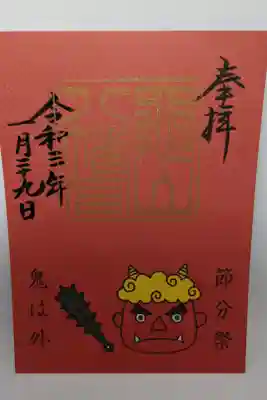 奉拝
令和二年
一月二十九日
節分祭
鬼は外